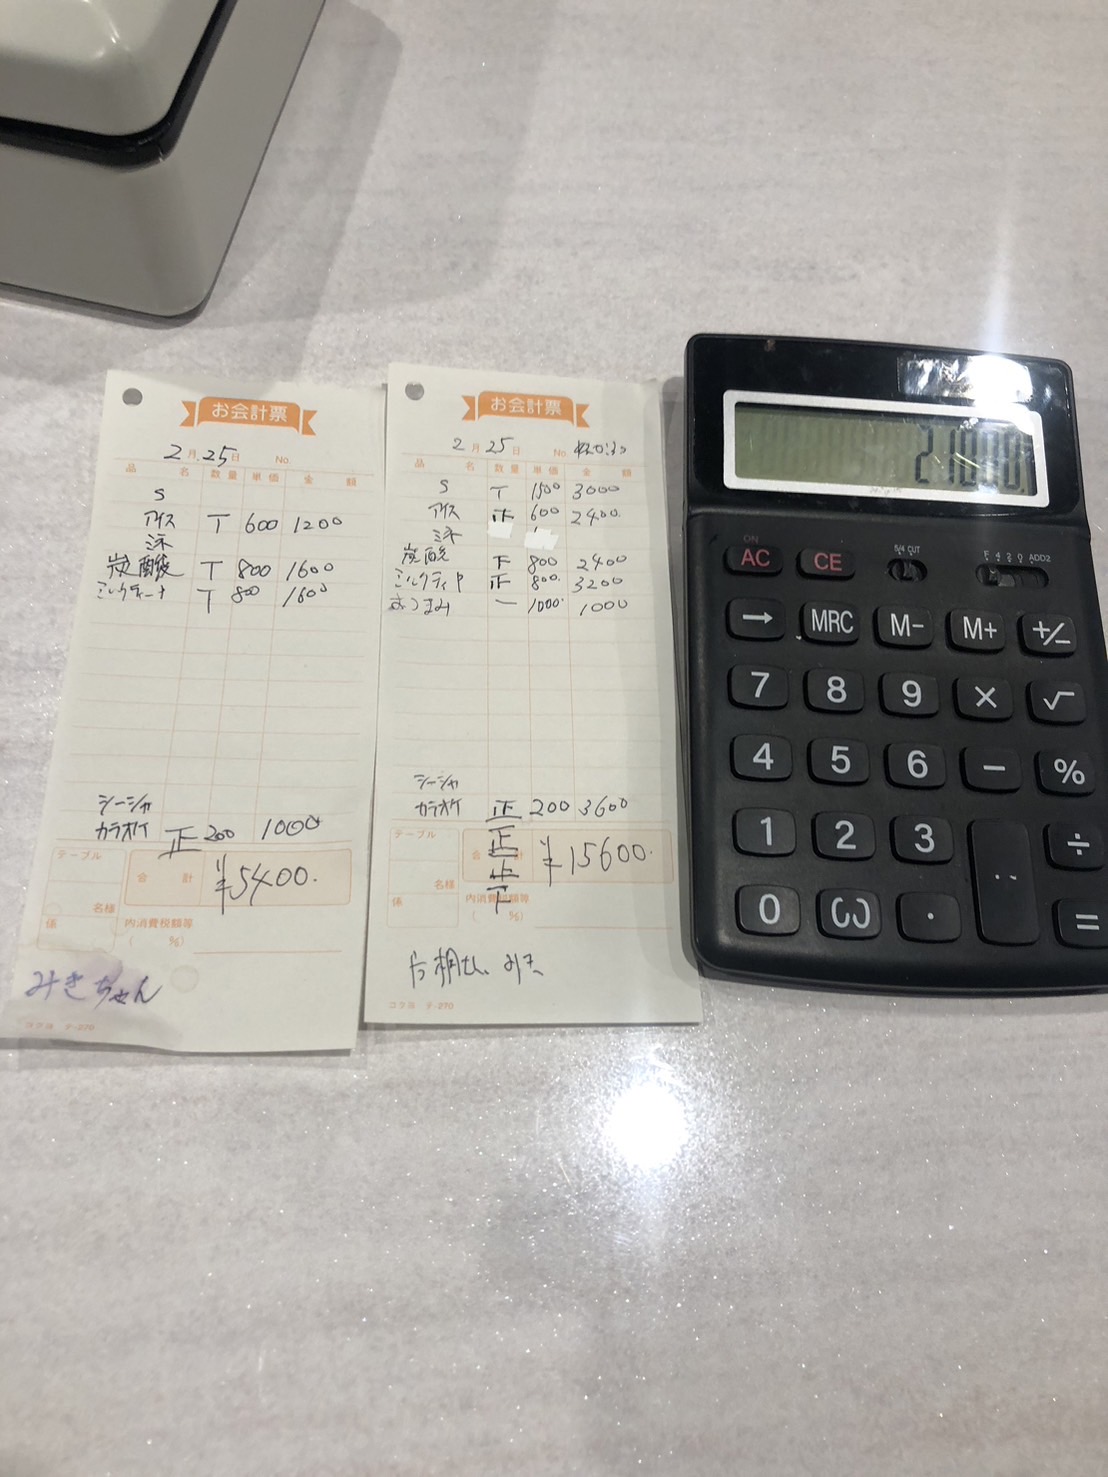 お会計票
2月25日 No.
品 名 数量 単価 金 額
S
アイス T 600 1200
氷
炭酸 T 800 1600
ミルクティー T 800 1600
シーシャ
カラオケ 正 200 1000
テーブル
合 計 ¥5400.
名様
係 内消費税額等
( %)
みきちゃん
コクヨ テ-270
お会計票
2月25日 No.
品 名 数量 単価 金 額
S T 1500 3000
アイス 正 600 2400.
氷
炭酸 下 800 2400
ミルクティ 正 800. 3200
おつまみ 一 1000. 1000
シーシャ
カラオケ 正 200 3600
正
正
下
テーブル
合 計 ¥15600.
名様
係 内消費税額等
( %)
コクヨ テ-270
21000.
ON
AC CE 5/4 CUT F 4 2 0 ADD2
→ MRC M- M+ +/-
7 8 9 × √
4 5 6 − %
1 2 3 ÷
0 00 . =